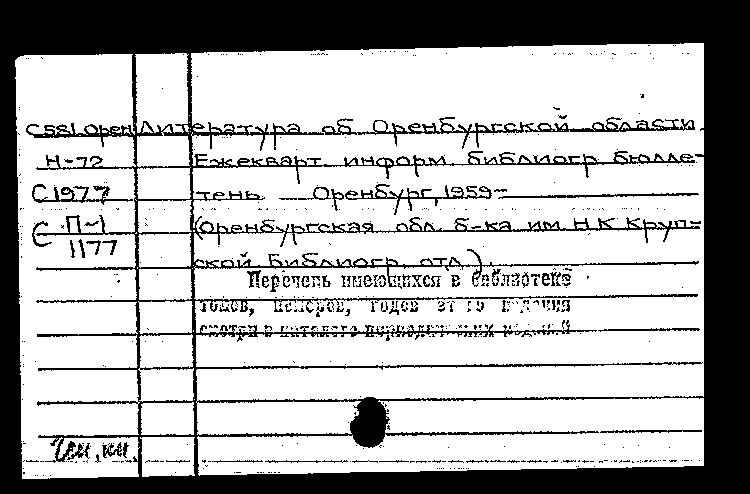 С551.Орен Литература об Оренбургской области.
Н-72 Ежекварт. информ. библиогр. бюлле-
С1977 тень. Оренбург, 1959-
П-1 (Оренбургская обл. б-ка им. Н.К. Круп-
1177
ской. Библиогр. отд.).
Перечень имеющихся в библиотеке
томов, номеров, годов этого издания
смотри в каталоге периодических изданий